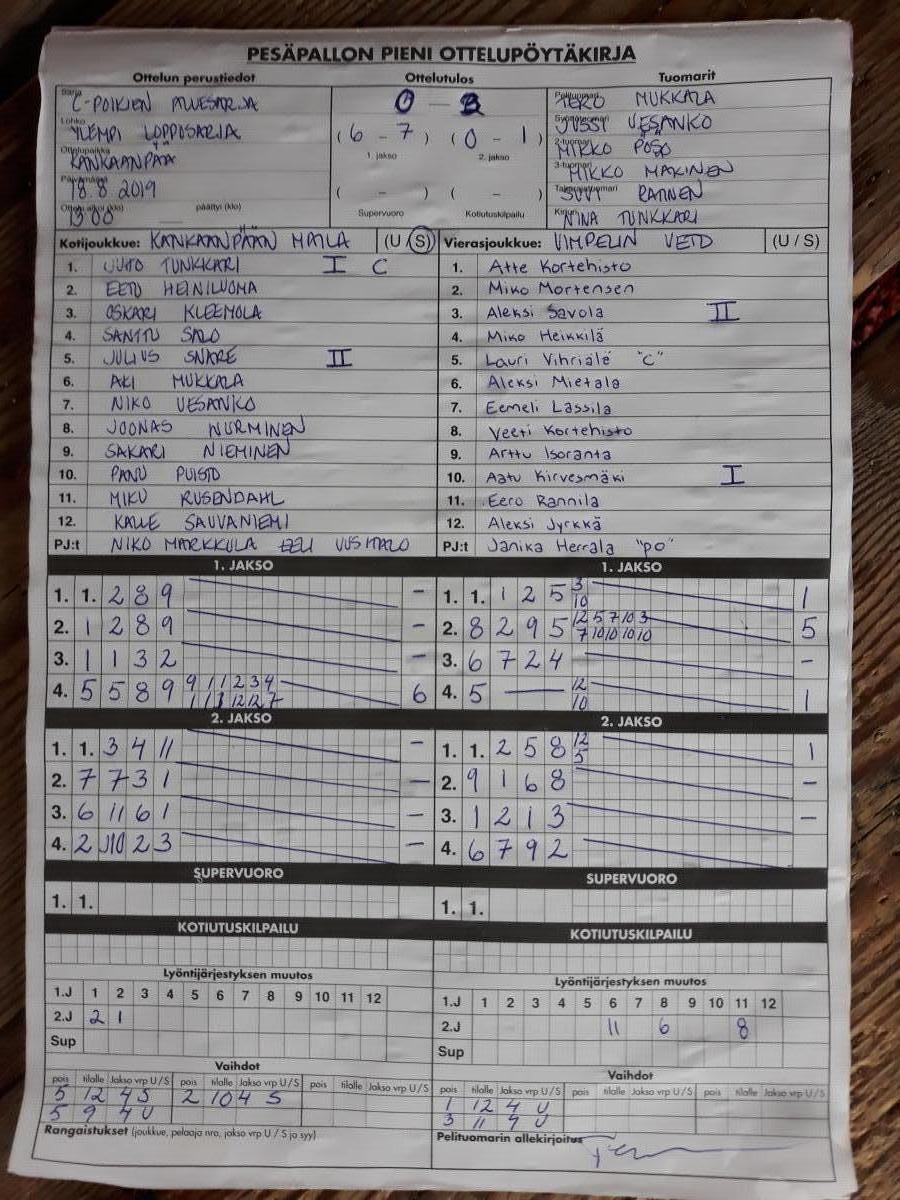 PESÄPALLON PIENI OTTELUPÖYTÄKIRJA
Ottelun perustiedot Ottelutulos Tuomarit
Sarja C-POIKIEN ALUESARJA
0 - 3
Pelituomari TERO MUKKALA
Lohko YLEMPI LOPPUSARJA
(6 - 7) (0 - 1)
1. jakso 2. jakso
Syöttötuomari JUSSI VESANKO
Ottelupaikka KANKAANPÄÄ
2-tuomari MIKKO PÖSÖ
Päivämäärä 18.8.2019
3-tuomari MIKKO MÄKINEN
( - ) ( - )
Takarajatuomari SUVI RANNEN
Ottelu alkoi (klo) 1300 päättyi (klo)
Supervuoro Kotiutuskilpailu
Kirjuri NINA TUNKKARI
Kotijoukkue: KANKAANPÄÄN MAILA (U / S)
Vierasjoukkue: VIMPELIN VETO (U / S)
1. UUTO TUNKKARI I C
2. EETU HEINILUOMA
3. OSKARI KLEEMOLA
4. SANTTU SALO
5. JULIUS SNÅRE II
6. AKI MUKKALA
7. NIKO VESANKO
8. JOONAS NURMINEN
9. SAKARI NIEMINEN
10. PANU PUISTO
11. MIKU RUSENDAHL
12. KALLE SAUVANIEMI
PJ:t NIKO MARKKULA EELI UUSITALO
1. Atte Kortehisto
2. Miko Mortensen
3. Aleksi Savola II
4. Miko Heikkilä
5. Lauri Vihriälä "C"
6. Aleksi Mietala
7. Eemeli Lassila
8. Veeti Kortehisto
9. Arttu Isoranta
10. Aatu Kirvesmäki I
11. Eero Rannila
12. Aleksi Jyrkkä
PJ:t Janika Herrala "po"
1. JAKSO
1. 1. 2 8 9 -
2. 1 2 8 9 -
3. 1 1 3 2 -
4. 5 5 8 9 9 1 1 2 3 4 6
1 1 11 12 12 7
1. JAKSO
1. 1. 1 2 5 3 1
10
2. 8 2 9 5 12 5 7 10 3 5
7 10 10 10 10
3. 6 7 2 4 -
4. 5 12 1
10
2. JAKSO
1. 1. 3 4 11 -
2. 7 7 3 1 -
3. 6 11 6 1 -
4. 2 10 2 3 -
2. JAKSO
1. 1. 2 5 8 12 1
5
2. 9 1 6 8 -
3. 1 2 1 3 -
4. 6 7 9 2
SUPERVUORO
1. 1.
SUPERVUORO
1. 1.
KOTIUTUSKILPAILU
KOTIUTUSKILPAILU
Lyöntijärjestyksen muutos
1.J 1 2 3 4 5 6 7 8 9 10 11 12
2.J 2 1
Sup
Lyöntijärjestyksen muutos
1.J 1 2 3 4 5 6 7 8 9 10 11 12
2.J 11 6 8
Sup
Vaihdot
pois tilalle Jakso vrp U / S pois tilalle Jakso vrp U / S pois tilalle Jakso vrp U / S
5 12 4 S 2 10 4 S
5 9 4 U
Vaihdot
pois tilalle Jakso vrp U / S pois tilalle Jakso vrp U / S pois tilalle Jakso vrp U / S
1 12 4 U
3 11 4 U
Rangaistukset (joukkue, pelaaja nro, jakso vrp U / S ja syy)
Pelituomarin allekirjoitus